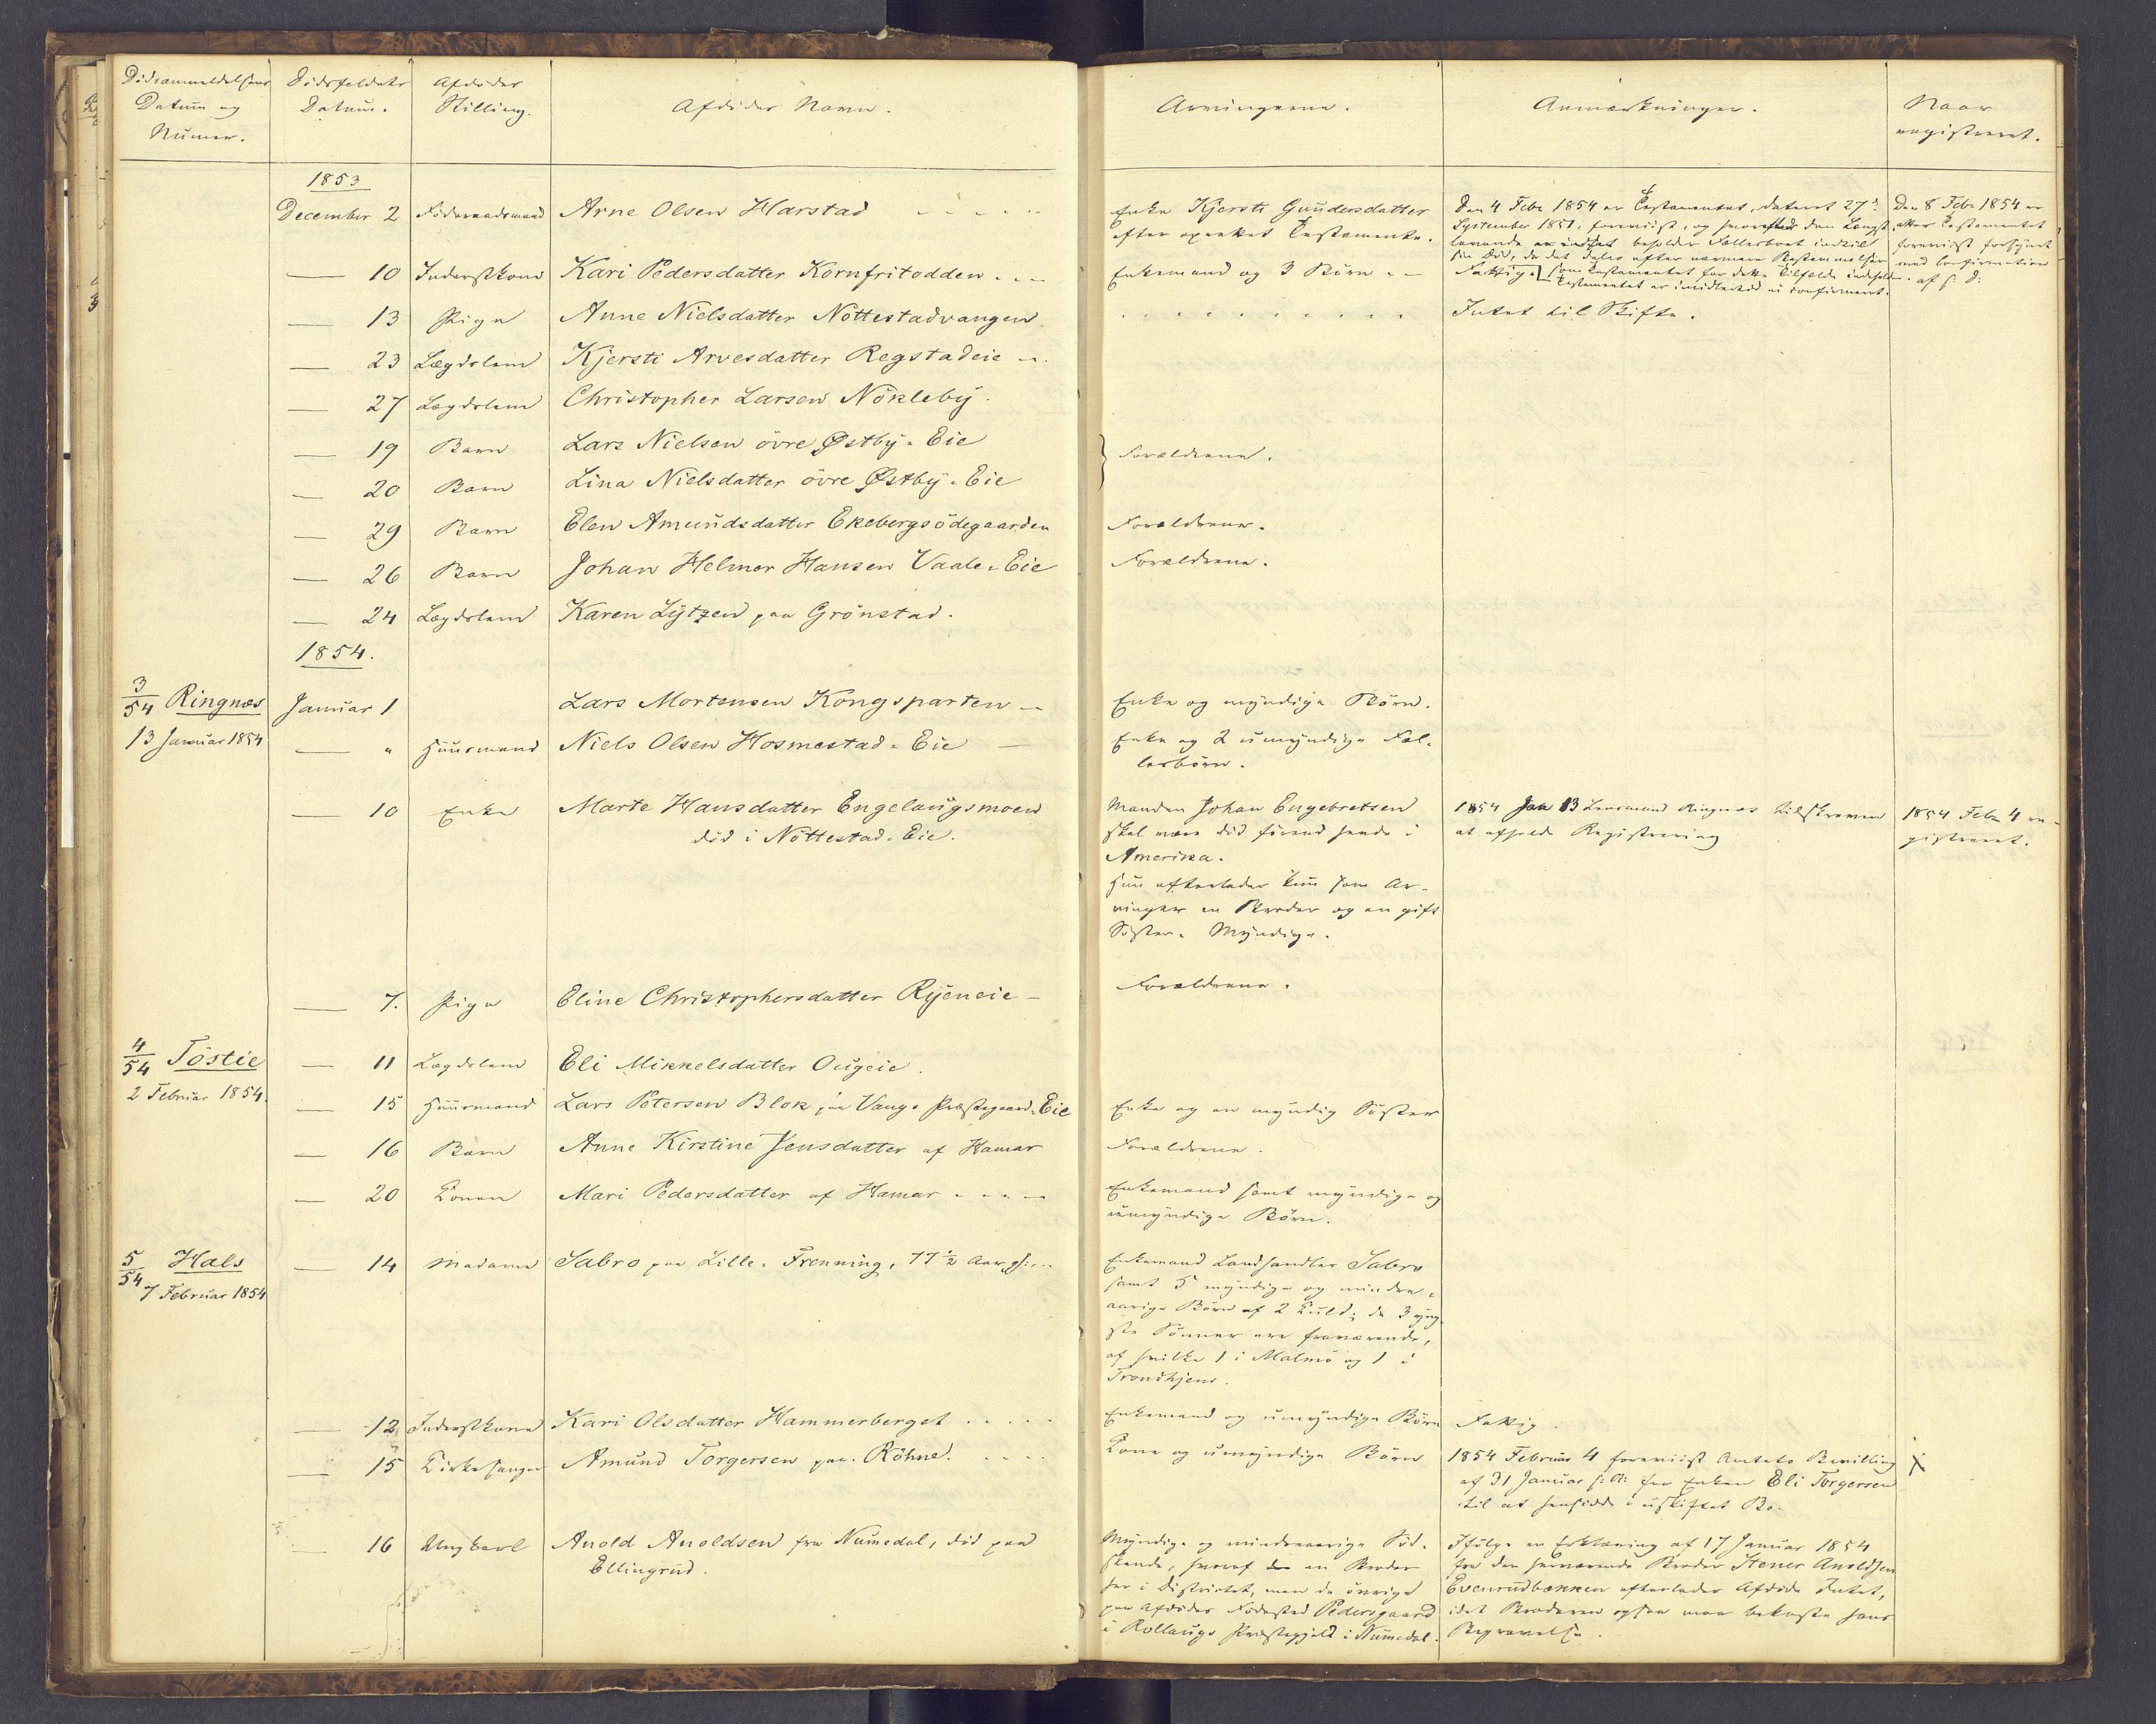 Dødsanmeldelsens Datum og Numer.
Dødsfaldets Datum.
Afdødes Stilling.
Afdødes Navn.
Arvingerne.
Anmærkninger.
Naar registreret.
1853
December 2 Føderaadsmand Arne Olsen Harstad
Enke Kjersti Gundersdatter
efter oprettet Testamente.
Den 4 Febr 1854 er Testamentet, dateret 27de
September 1851, foreviist, og hvorefter den Længst
levende beholder Fællesboet indtil
sin Død, da det deles efter nærmere Bestemmelser
som Testamentet for dette Tilfælde indeholder.
Testamentet er imidlertid ei confirmeret.
Den 8 Febr 1854 er
atter Testamentet
foreviist forsynet
med Confirmation
af s. D.
— 10 Inderstkone Kari Pedersdatter Kornfritodden
Enkemand og 3 Børn
Fattig.
— 13 Pige Anne Nielsdatter Nöttestadvangen
Intet til Skifte.
— 23 Lægdslem Kjersti Arvesdatter Regstadeie
— 27 Lægdslem Christopher Larsen Nökleby.
— 19 Barn Lars Nielsen övre Østby-Eie
Forældrene.
— 20 Barn Lina Nielsdatter övre Østby-Eie
— 29 Barn Elen Amundsdatter Ekebergsödegaarden
Forældrene.
— 26 Barn Johan Helmer Hansen Vaale-Eie
Forældrene.
— 24 Lægdslem Karen Lytzen paa Grönstad.
1854.
3/54 Ringnæs
13 Januar 1854
Januar 1 Lars Mortensen Kongsparten
Enke og myndige Børn.
— " Huusmand Niels Olsen Hosmestad-Eie
Enke og 2 umyndige Fæl-
lesbørn.
— 10 Enke Marte Hansdatter Engelaugsmoen
död i Nöttestad-Eie.
Manden Johan Engebretsen
skal være död förend hende i
Amerika.
Hun efterlader kun som Ar-
vinger en Broder og en gift
Söster. Myndige.
1854 Jan 13 Lensmand Ringnæs tilskreven
at afholde Registrering
1854 Febr 4 re-
gistreret.
— 7. Pige Eline Christophersdatter Ryeneie
Forældrene.
4/54 Töstie
2 Februar 1854.
— 11 Lægdslem Eli Mikkelsdatter Ougeie.
— 15 Huusmand Lars Petersen Blok paa Vangs Præstegaard-Eie
Enke og en myndig Söster
— 16 Barn Anne Kirstine Jensdatter af Hamar
Forældrene.
— 20 Konen Mari Pedersdatter af Hamar
Enkemand samt myndige og
umyndige Børn.
5/54 Hals
7 Februar 1854
— 14 Madame Sabro paa Lille-Frenning, 77½ Aar gl.
Enkemand Landhandler Sabro
samt 5 myndige og mindre-
aarige Børn af 2 Kuld; de 3 yng
ste Sönner ere fraværende,
af hvilke 1 i Malmö og 1 i
Trondhjem.
— 12 Inderstkone Kari Olsdatter Hammerberget
Enkemand og umyndige Børn
Fattig.
— 15 Kirkesanger Amund Torgersen paa Röhne.
Kone og umyndige Børn
1854 Februar 4 foreviist Amtets Bevilling
af 31 Januar s. A. for Enken Eli Torgersen
til at hensidde i uskiftet Bo.
X
— 16 Ungkarl Anold Anoldsen fra Numedal, död paa
Ellingrud.
Myndige og mindreaarige Sød-
skende, hvoraf en Broder
her i Districtet, men de övrige
paa Afdödes Födested Pedersgaard
i Rollaugs Præstegjeld i Numedal.
Ifølge en Erklæring af 17 Januar 1854
fra den herværende Broder Stener Anoldsen
Evenrudbækken efterlader Afdøde Intet,
idet Broderen ogsaa maa bekoste hans
Begravelse.